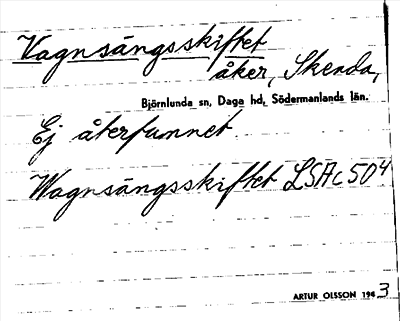 Vagnsängsskiftet
åker, Skenda,
Björnlunda sn, Daga hd, Södermanlands län.
Ej återfunnet
Wagnsängsskiftet LSA c 50⁴
ARTUR OLSSON 1943